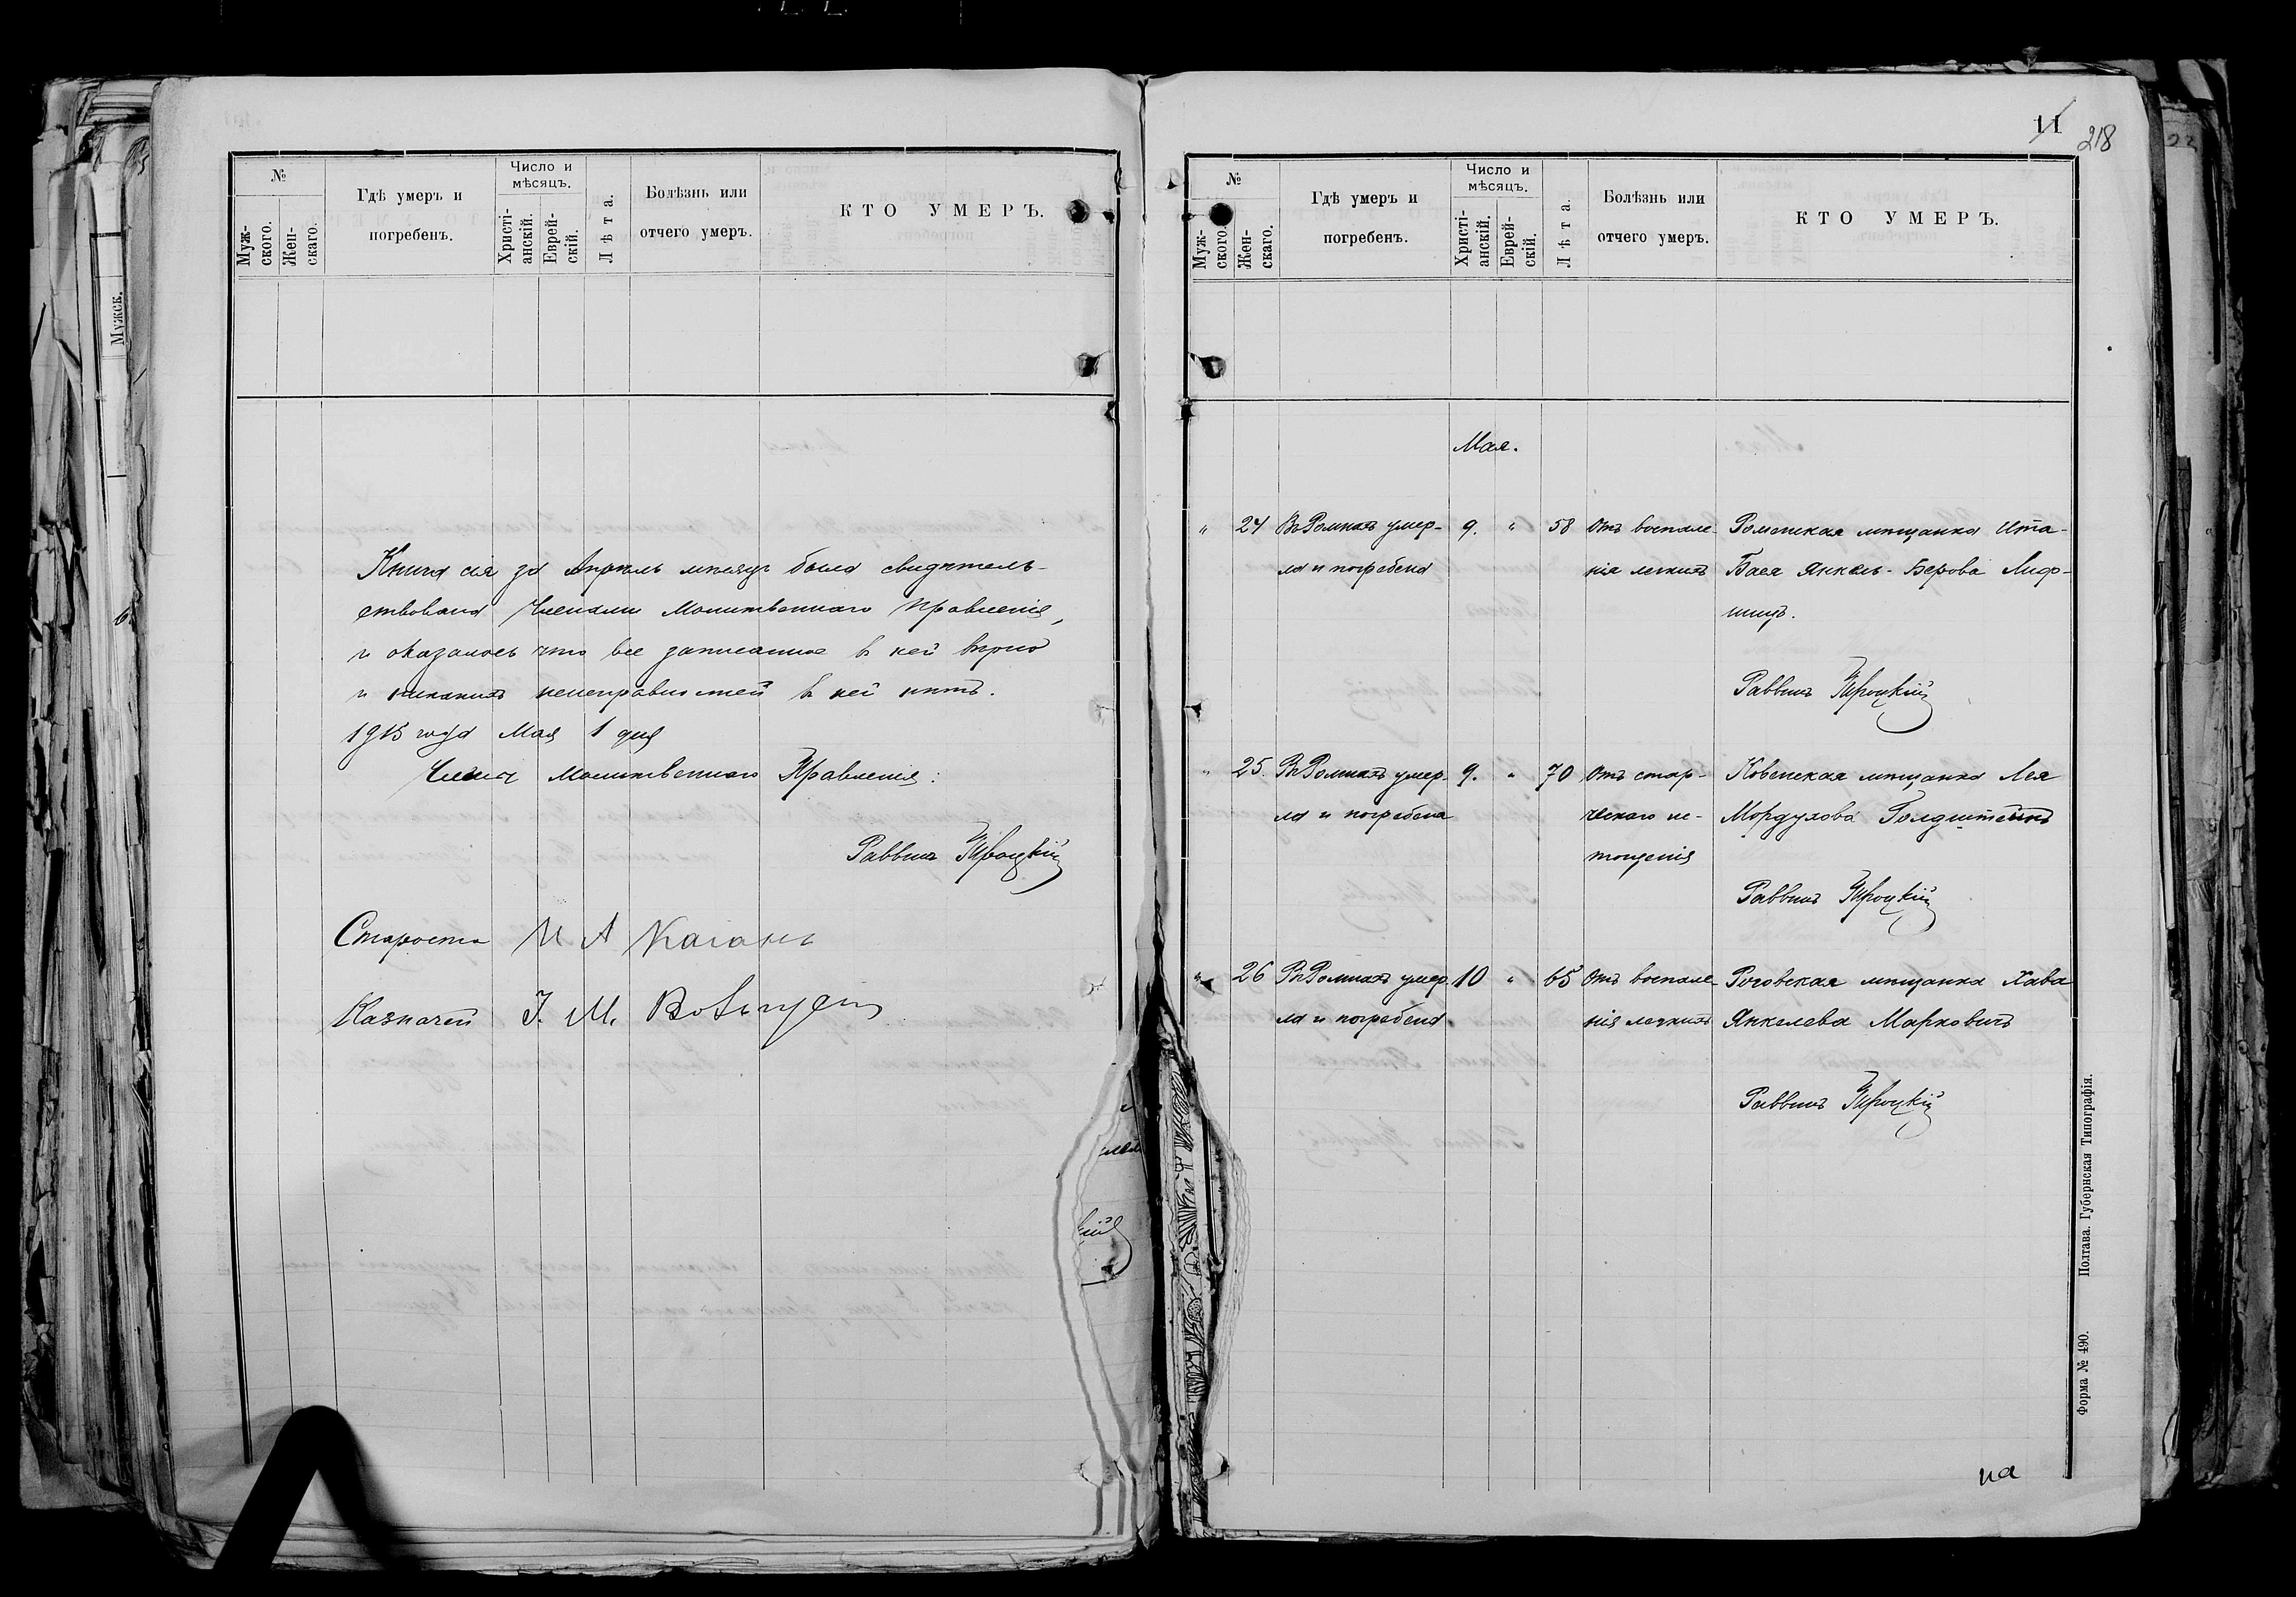 №
Муж-
ского.
Жен-
скаго.
Гдѣ умеръ и
погребенъ.
Число и
мѣсяцъ.
Христі-
анскій.
Еврей-
скій.
Лѣта.
Болѣзнь или
отчего умеръ.
КТО УМЕРЪ.
Книга сія за Апрѣль мѣсяцъ была свидѣтель-
ствована Членами Молитвеннаго Правленія,
и оказалось что все записанное въ ней вѣрно
и никакихъ неисправностей въ ней нѣтъ.
1915 года Мая 1 дня
Члены Молитвеннаго Правленія:
Раввинъ
Староста И А Каганъ
Казначей I. М.
11
218
№
Муж-
ского.
Жен-
скаго.
Гдѣ умеръ и
погребенъ.
Число и
мѣсяцъ.
Христі-
анскій.
Еврей-
скій.
Лѣта.
Болѣзнь или
отчего умеръ.
КТО УМЕРЪ.
Мая.
" 24 Въ Ромнахъ умер- 9. " 58 Отъ воспале- Роменская мѣщанка Ита-
ла и погребена нія легкихъ Бася Янкель-Берова Лиф-
шицъ.
Раввинъ
" 25. Въ Ромнахъ умер- 9. " 70 Отъ стар- Ковенская мѣщанка Лея
ла и погребена ческаго ис- Мордухова Голдштейнъ
тощенія
Раввинъ
" 26 Въ Ромнахъ умер- 10 " 65 Отъ воспале- Роговская мѣщанка Хава
ла и погребена нія легкихъ Янкелева Марковичъ
Раввинъ
на
Форма № 490. Полтава. Губернская Типографія.
Мужск.